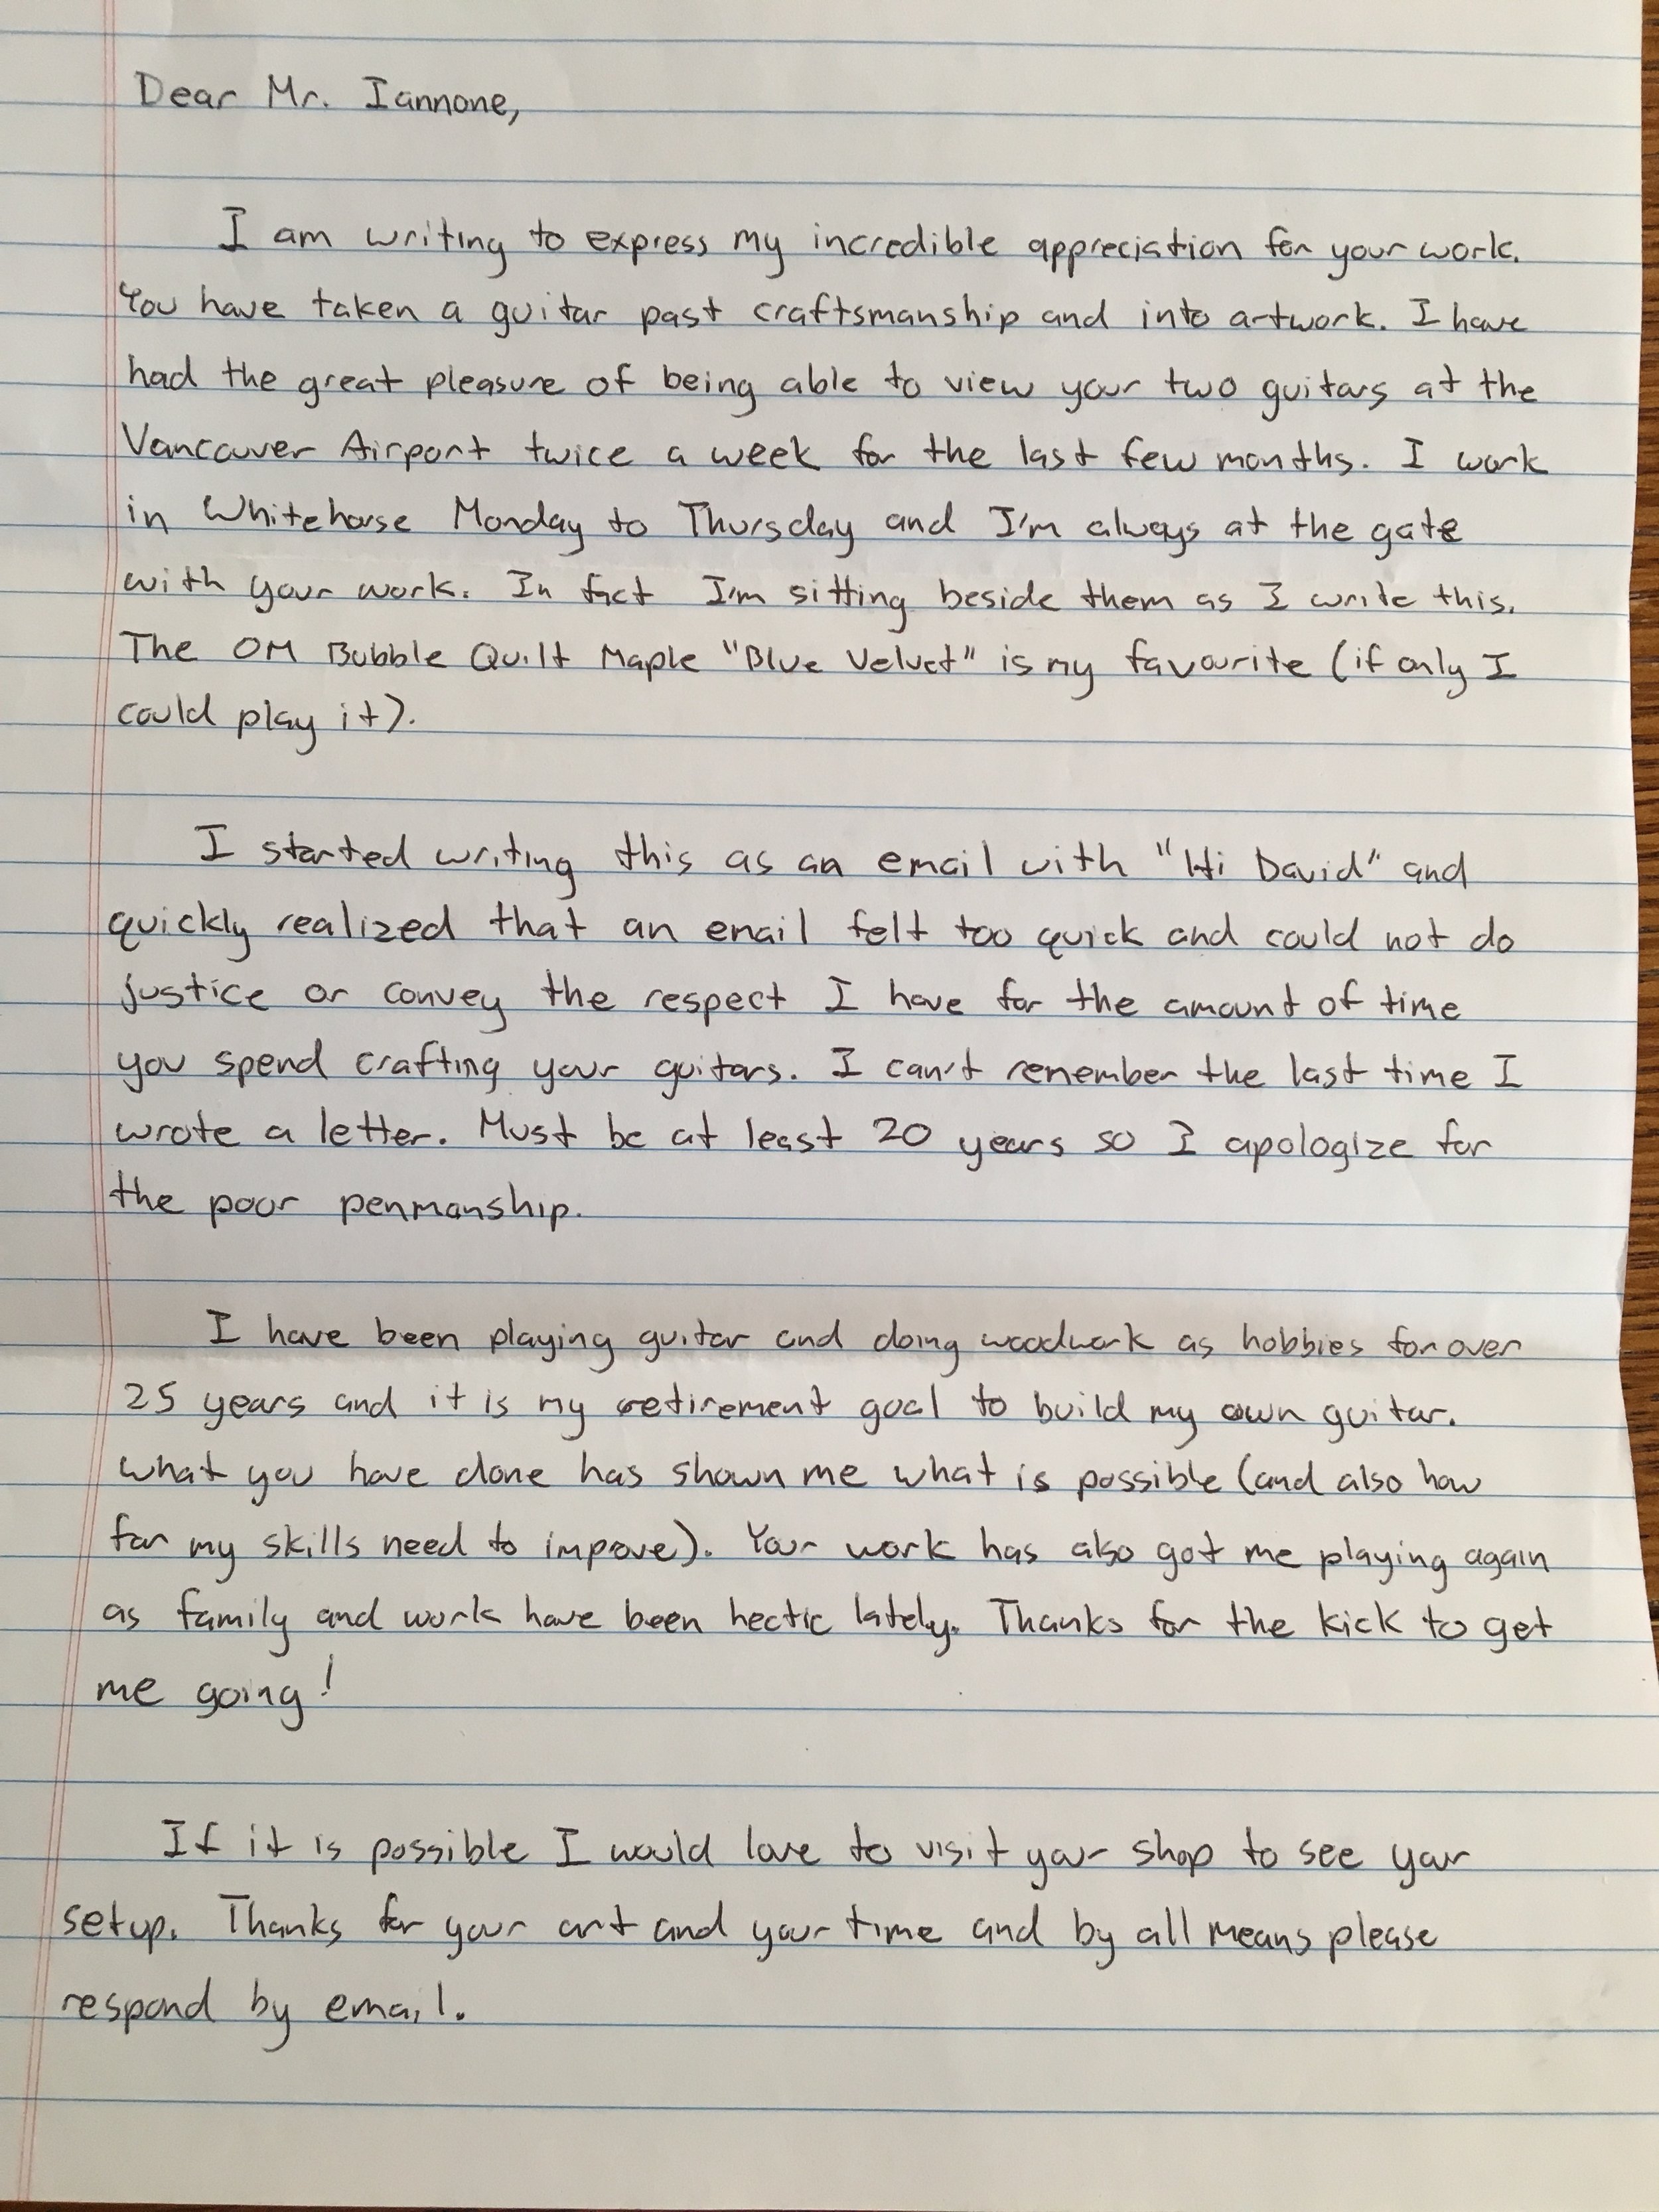 Dear Mr. Iannone,
I am writing to express my incredible appreciation for your work.
You have taken a guitar past craftsmanship and into artwork. I have
had the great pleasure of being able to view your two guitars at the
Vancouver Airport twice a week for the last few months. I work
in Whitehorse Monday to Thursday and I'm always at the gate
with your work. In fact I'm sitting beside them as I write this.
The OM Bubble Quilt Maple "Blue Velvet" is my favourite (if only I
could play it).
I started writing this as an email with "Hi David" and
quickly realized that an email felt too quick and could not do
justice or convey the respect I have for the amount of time
you spend crafting your guitars. I can't remember the last time I
wrote a letter. Must be at least 20 years so I apologize for
the poor penmanship.
I have been playing guitar and doing woodwork as hobbies for over
25 years and it is my retirement goal to build my own guitar.
What you have done has shown me what is possible (and also how
far my skills need to improve). Your work has also got me playing again
as family and work have been hectic lately. Thanks for the kick to get
me going!
If it is possible I would love to visit your shop to see your
setup. Thanks for your art and your time and by all means please
respond by email.